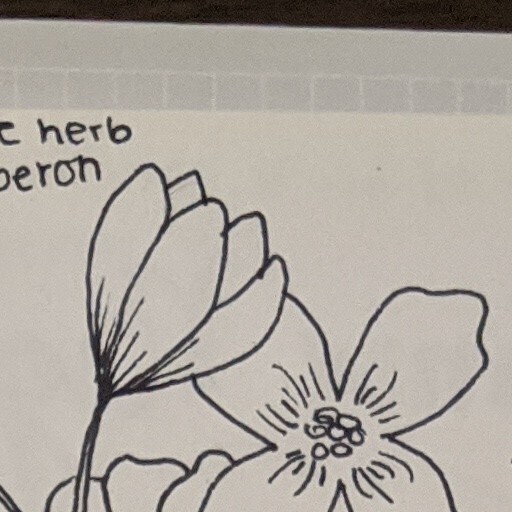 c herb
beron